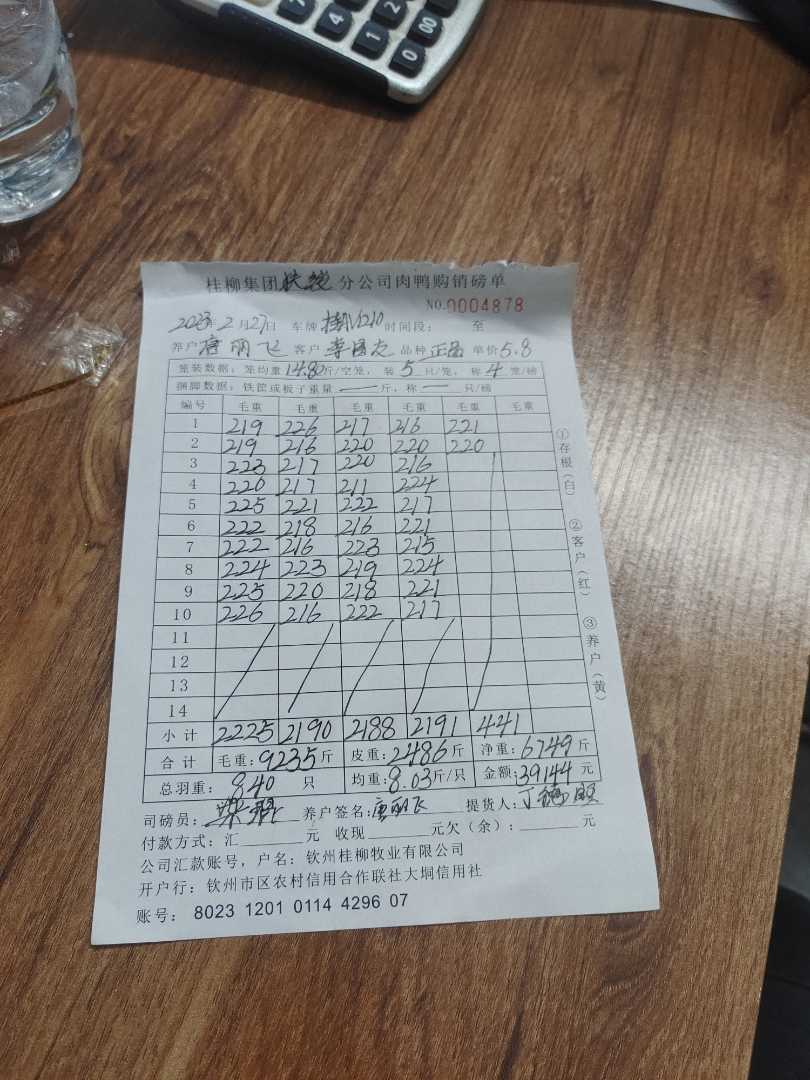 00
0
1
4
桂柳集团扶绥分公司肉鸭购销磅单
NO.0004878
2023年2月27日 车牌 时间段: 至
养户 唐丽飞 客户 李 品种 正品 单价5.8
笼装数据:笼均重14.80斤/空笼, 装5只/笼, 称4笼/磅
捆脚数据:铁筐或板子重量—斤,称—只/磅
编号 毛重 毛重 毛重 毛重 毛重 毛重
1 219 226 217 216 221
2 219 216 220 220 220
3 223 217 220 216
4 220 217 211 224
5 225 221 222 217
6 222 218 216 221
7 222 216 223 215
8 224 223 219 224
9 225 220 218 221
10 226 216 222 217
11
12
13
14
小计 2225 2190 2188 2191 441
合计 毛重:9235斤 皮重:2486斤 净重:6749斤
总羽重: 840 只 均重:8.03斤/只 金额:39144元
司磅员: 养户签名:唐丽飞 提货人:丁
付款方式:汇______元 收现______元欠(余):______元
公司汇款账号,户名:钦州桂柳牧业有限公司
开户行:钦州市区农村信用合作联社大垌信用社
账号: 8023 1201 0114 4296 07
①存根(白) ②客户(红) ③养户(黄)